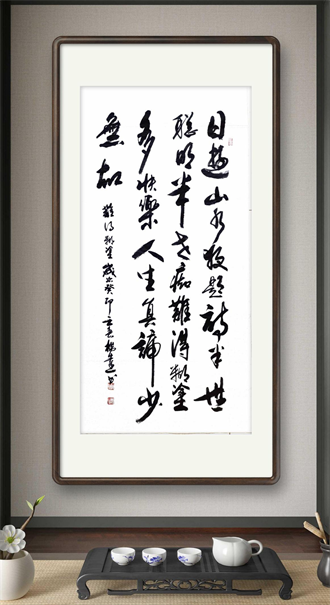 日遊山水夜題詩半世
聰明半世痴難得糊塗
多快樂人生真諦少
無知
難得糊塗歲次癸卯